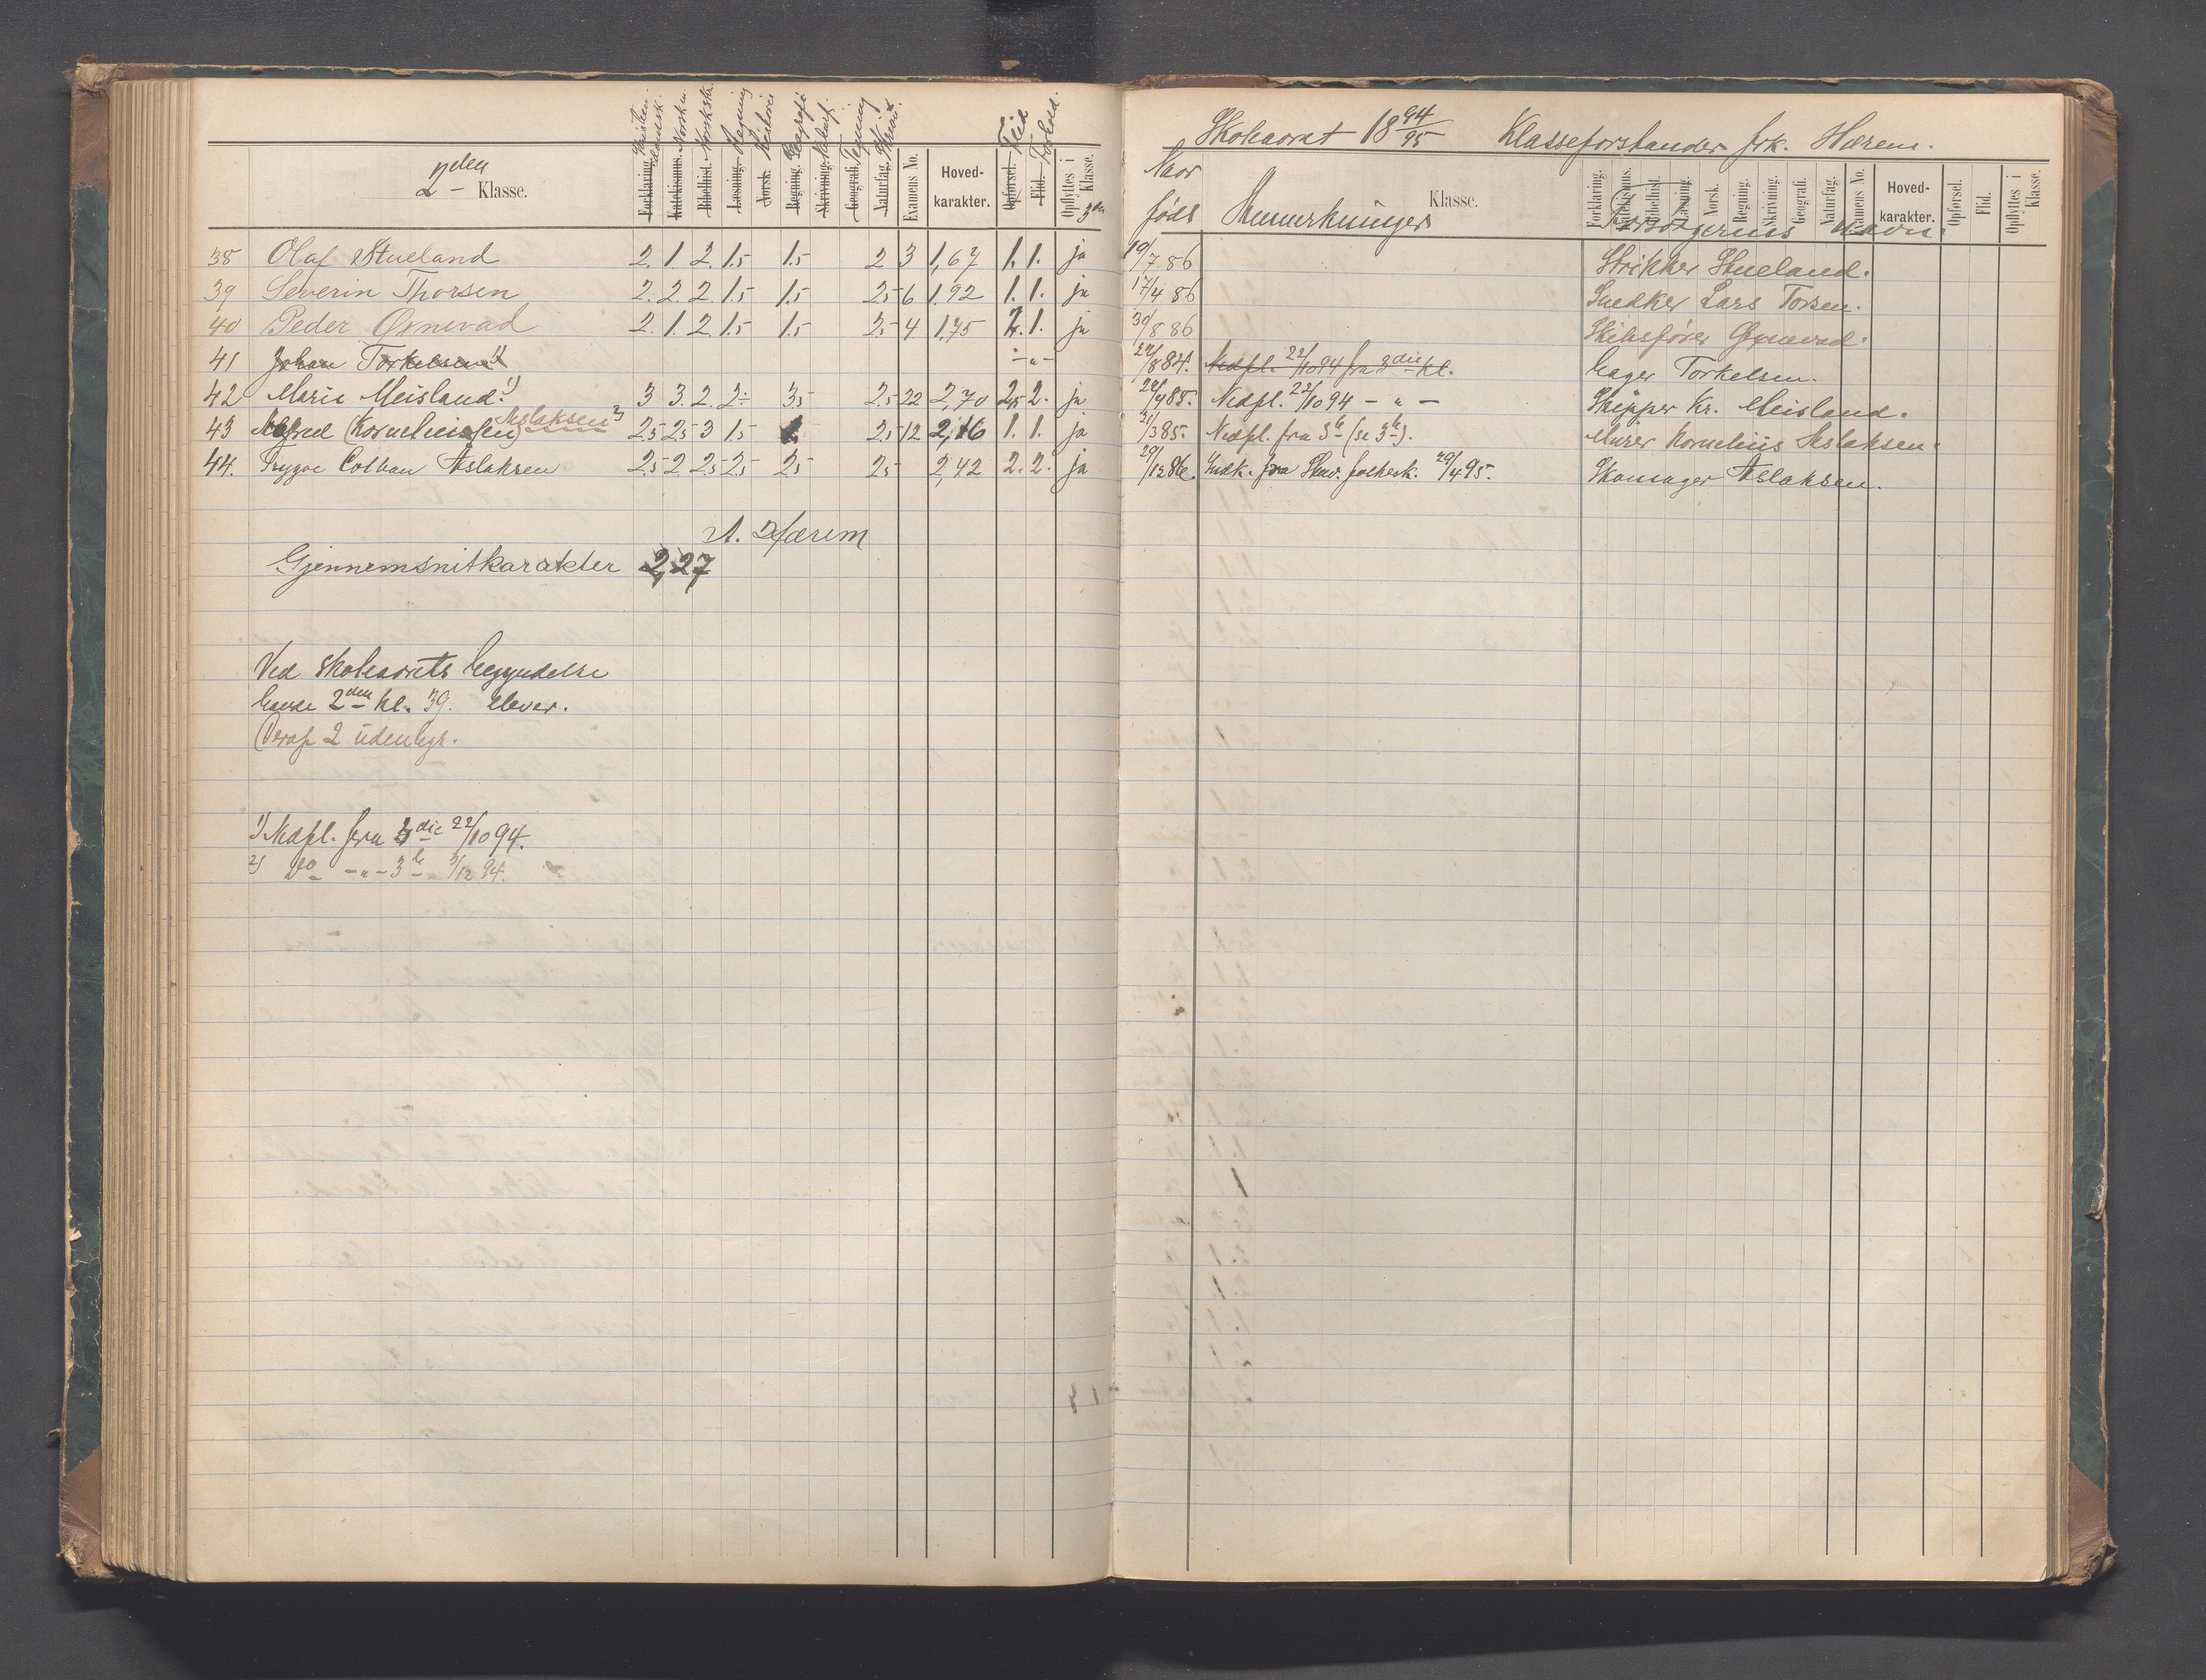 Skoleaaret 18 94/95 Klasseforstander frk. Hærem.
2den Klasse.
Kristendomsk. Norsk m. Norsk sk. Regning Historie Geografi Naturf. Tegning Skrivn. Flid Forhold.
Forklaring. Katekismus. Bibelhist. Læsning. Norsk. Regning. Skrivning. Geografi. Naturfag. Examens No. Hoved-karakter. Opførsel. Flid. Opflyttes i 3die Klasse.
Naar født Anmerkninger Klasse. Forsørgerens Navn.
Forklaring. Katekismus. Bibelhist. Læsning. Norsk. Regning. Skrivning. Geografi. Naturfag. Examens No. Hoved-karakter. Opførsel. Flid. Opflyttes i Klasse.
38 Olaf Stueland 2. 1. 2. 1.5 1.5 2 3 1,67 1. 1. ja 19/7.86 Strikker Stueland.
39 Severin Thorsen 2. 2. 2. 1.5 1.5 2.5 6 1.92 1. 1. ja 17/4 86 Snedker Lars Torsen.
40 Peder Ørnevad 2. 1. 2. 1.5 1.5 2.5 4 1,75 1. 1. ja 30/8 86 Skibsfører Ørnevad.
41 Johan Torkelsen 1) - " - 24/8 84. Nedfl. 22/10 94 fra 3die kl. Lager Torkelsen.
42 Marie Meisland. 1) 3 3. 2. 2÷ 3.5 2.5 22 2,70 2.5 2. ja 24/4 85. Nedfl. 22/10 94 - " - Skipper Kr. Meisland.
43 Alfred (Korneliussen) Aslaksen 2) 2.5 2.5 3 1.5 2.5 12 2,16 1. 1. ja 31/3 85. Nedfl. fra 3b (se 3b). Murer Kornelius Aslaksen.
44. Trygve Colban Aslaksen 2.5 2. 2.5 2.5 2.5 2.5 2,42 2. 2. ja 29/12 86. Indk. fra Skav. folkesk. 29/4 95. Skomager Aslaksen.
A. Hærem
Gjennemsnitkarakter 2,27
Ved skoleaarets begyndelse
havde 2den kl. 39. elever.
Deraf 2 udenbys.
1) Nedfl. fra 3die 22/10 94.
2) Do - " - 3b 3/12 94.